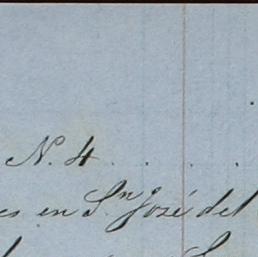 N. 4 . . . .
es en Sn José del